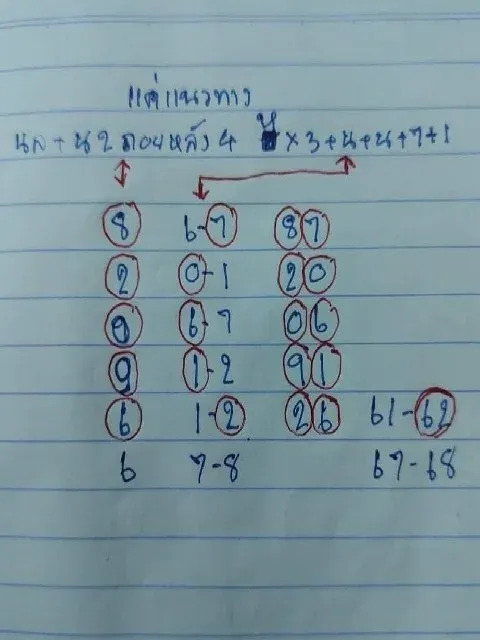 แค่แนวทาง
นล+น2 ถอยหลัง4 น×3+น+น+7+1
8 6-7 87
2 0-1 20
0 6-7 06
9 1-2 91
6 1-2 26 61-62
6 7-8 67-68